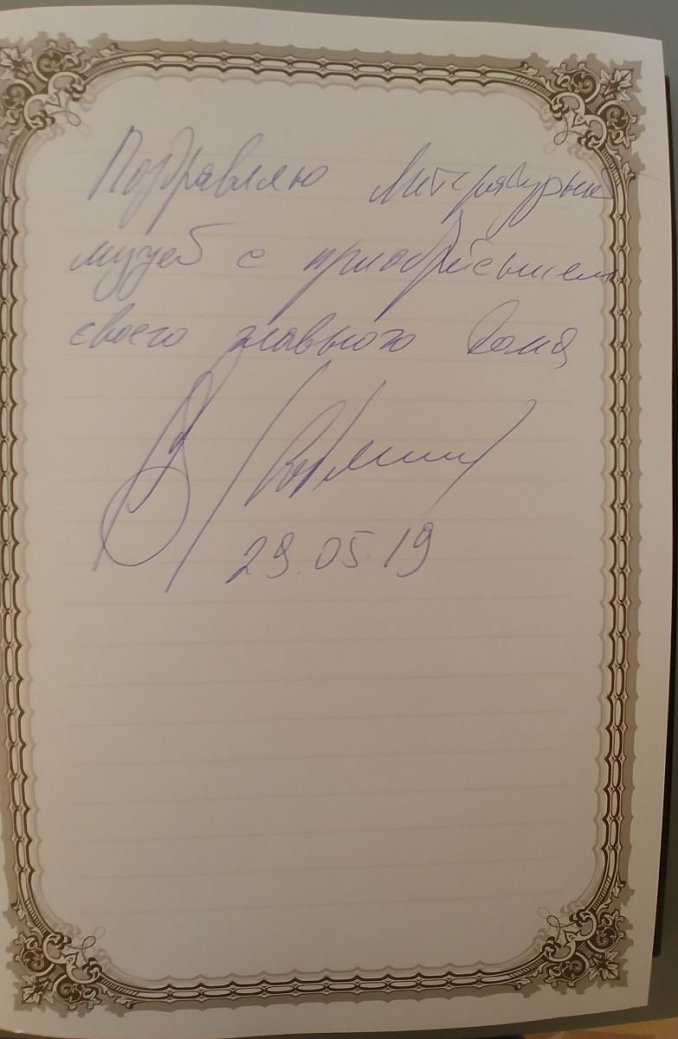 Поздравляю Литературный
музей с приобретением
своего главного дома
29.05.19